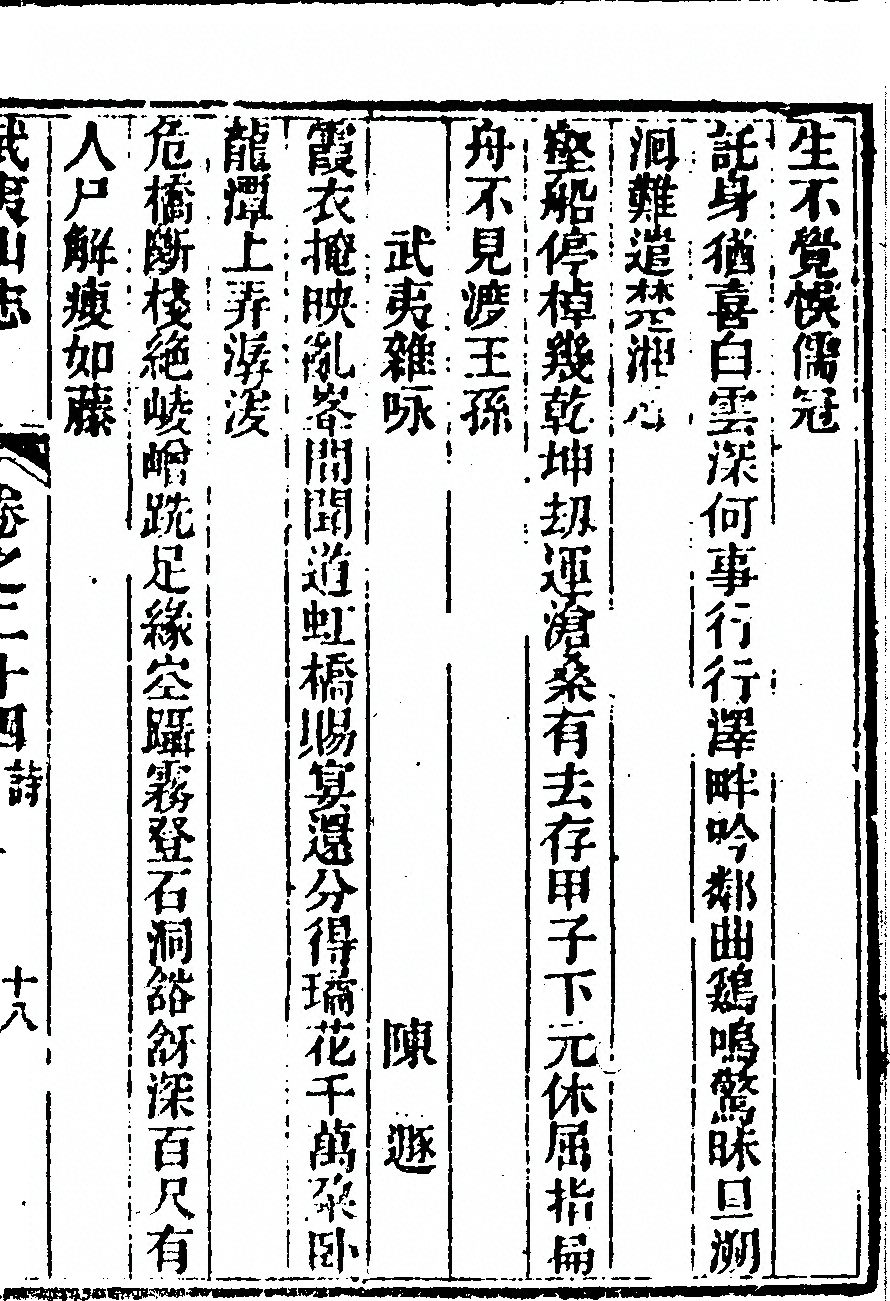 生不覺悞儒冠
託身猶喜白雲深何事行行澤畔吟鄰曲鷄鳴驚昧旦溯
洄難遣楚湘心
壑船停棹幾乾坤刧運滄桑有去存甲子下元休屈指扁
舟不見渡王孫
武夷雜咏 陳遯
霞衣掩映亂峯間聞道虹橋賜宴還分得瑤花千萬朶卧
龍潭上弄潺湲
危橋斷棧絶崚嶒跣足緣空躡霧登石洞谽谺深百尺有
人尸解瘦如藤
武夷山志 卷之二十四 詩 十八